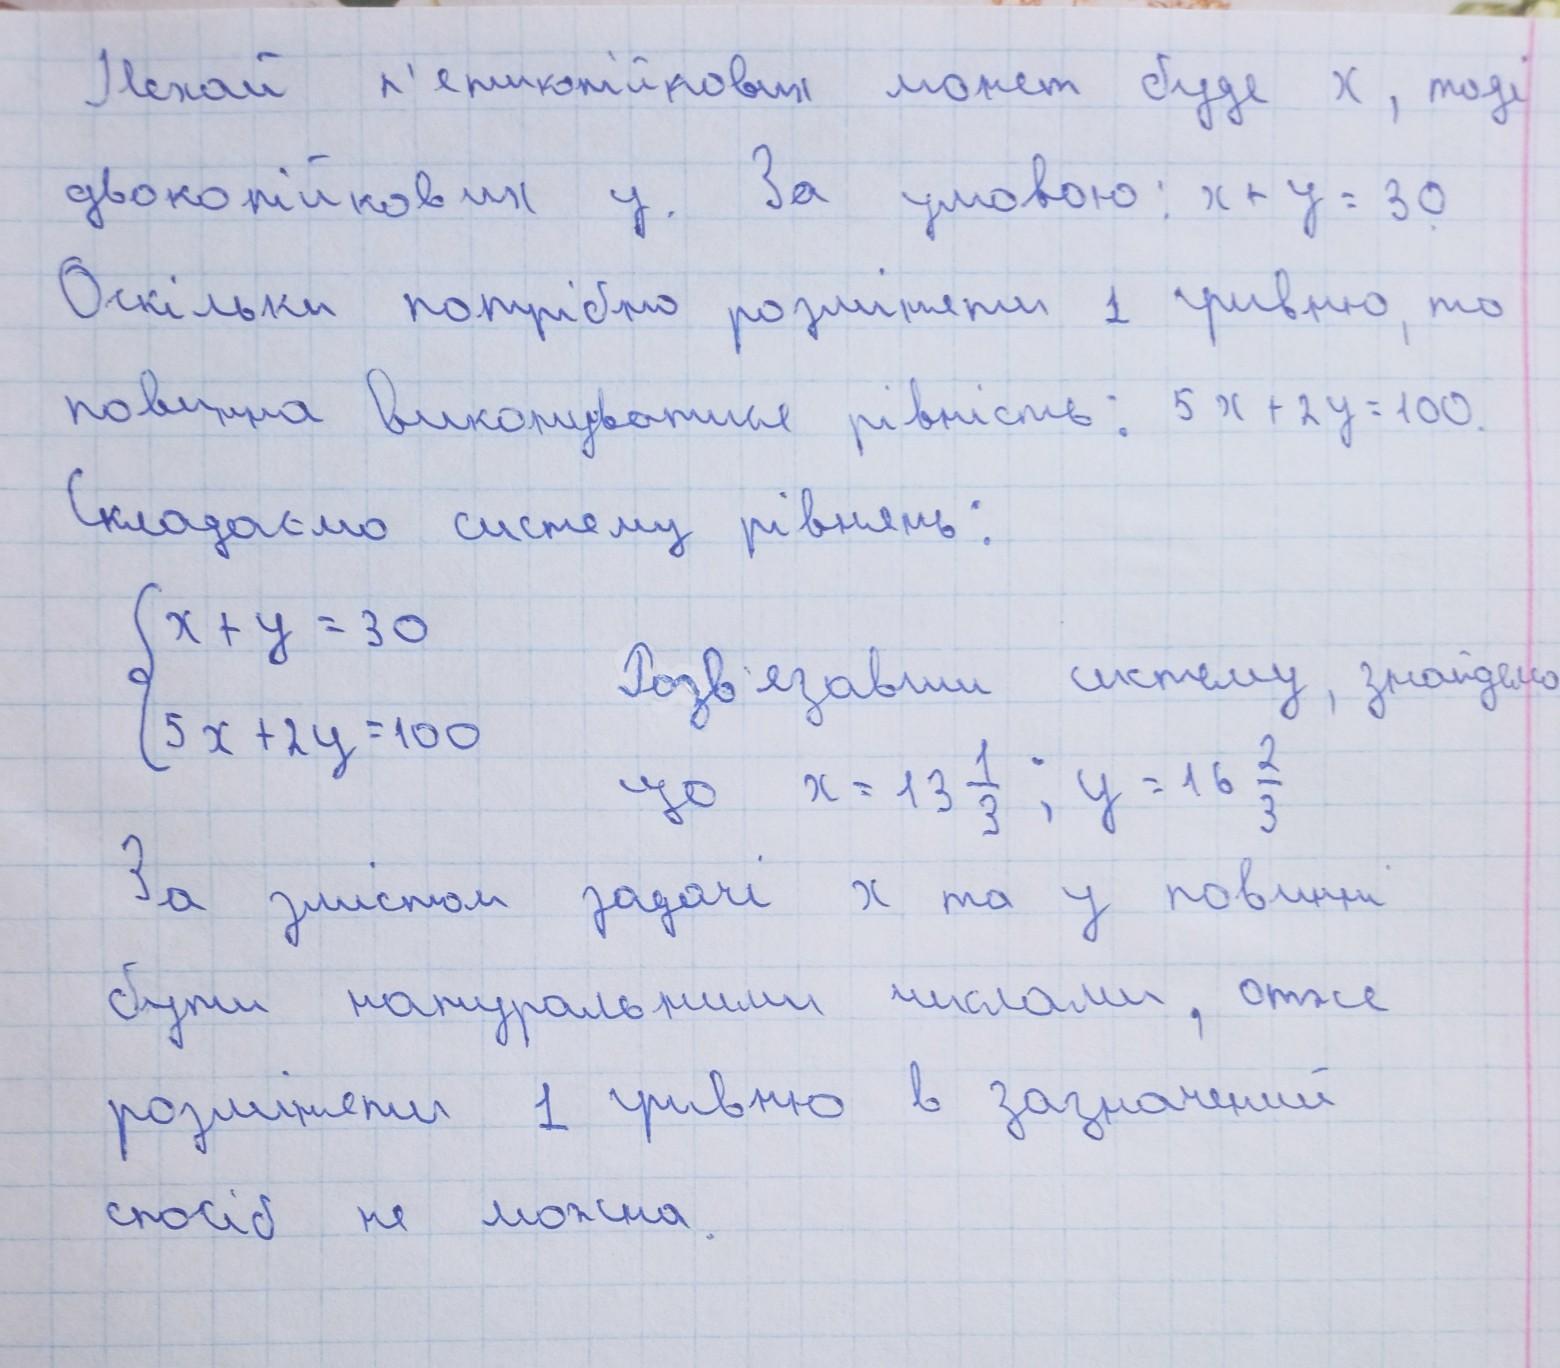 Нехай п'ятикопійкових монет буде x, тоді
двокопійкових y. За умовою: x + y = 30
Оскільки потрібно розміняти 1 гривню, то
повинна виконуватися рівність: 5x + 2y = 100.
Складаємо систему рівнянь:
{ x + y = 30
5x + 2y = 100
Розв'язавши систему, знайдемо
що x = 13 1/3 ; y = 16 2/3
За змістом задачі x та y повинні
бути натуральними числами, отже
розміняти 1 гривню в зазначений
спосіб не можна.